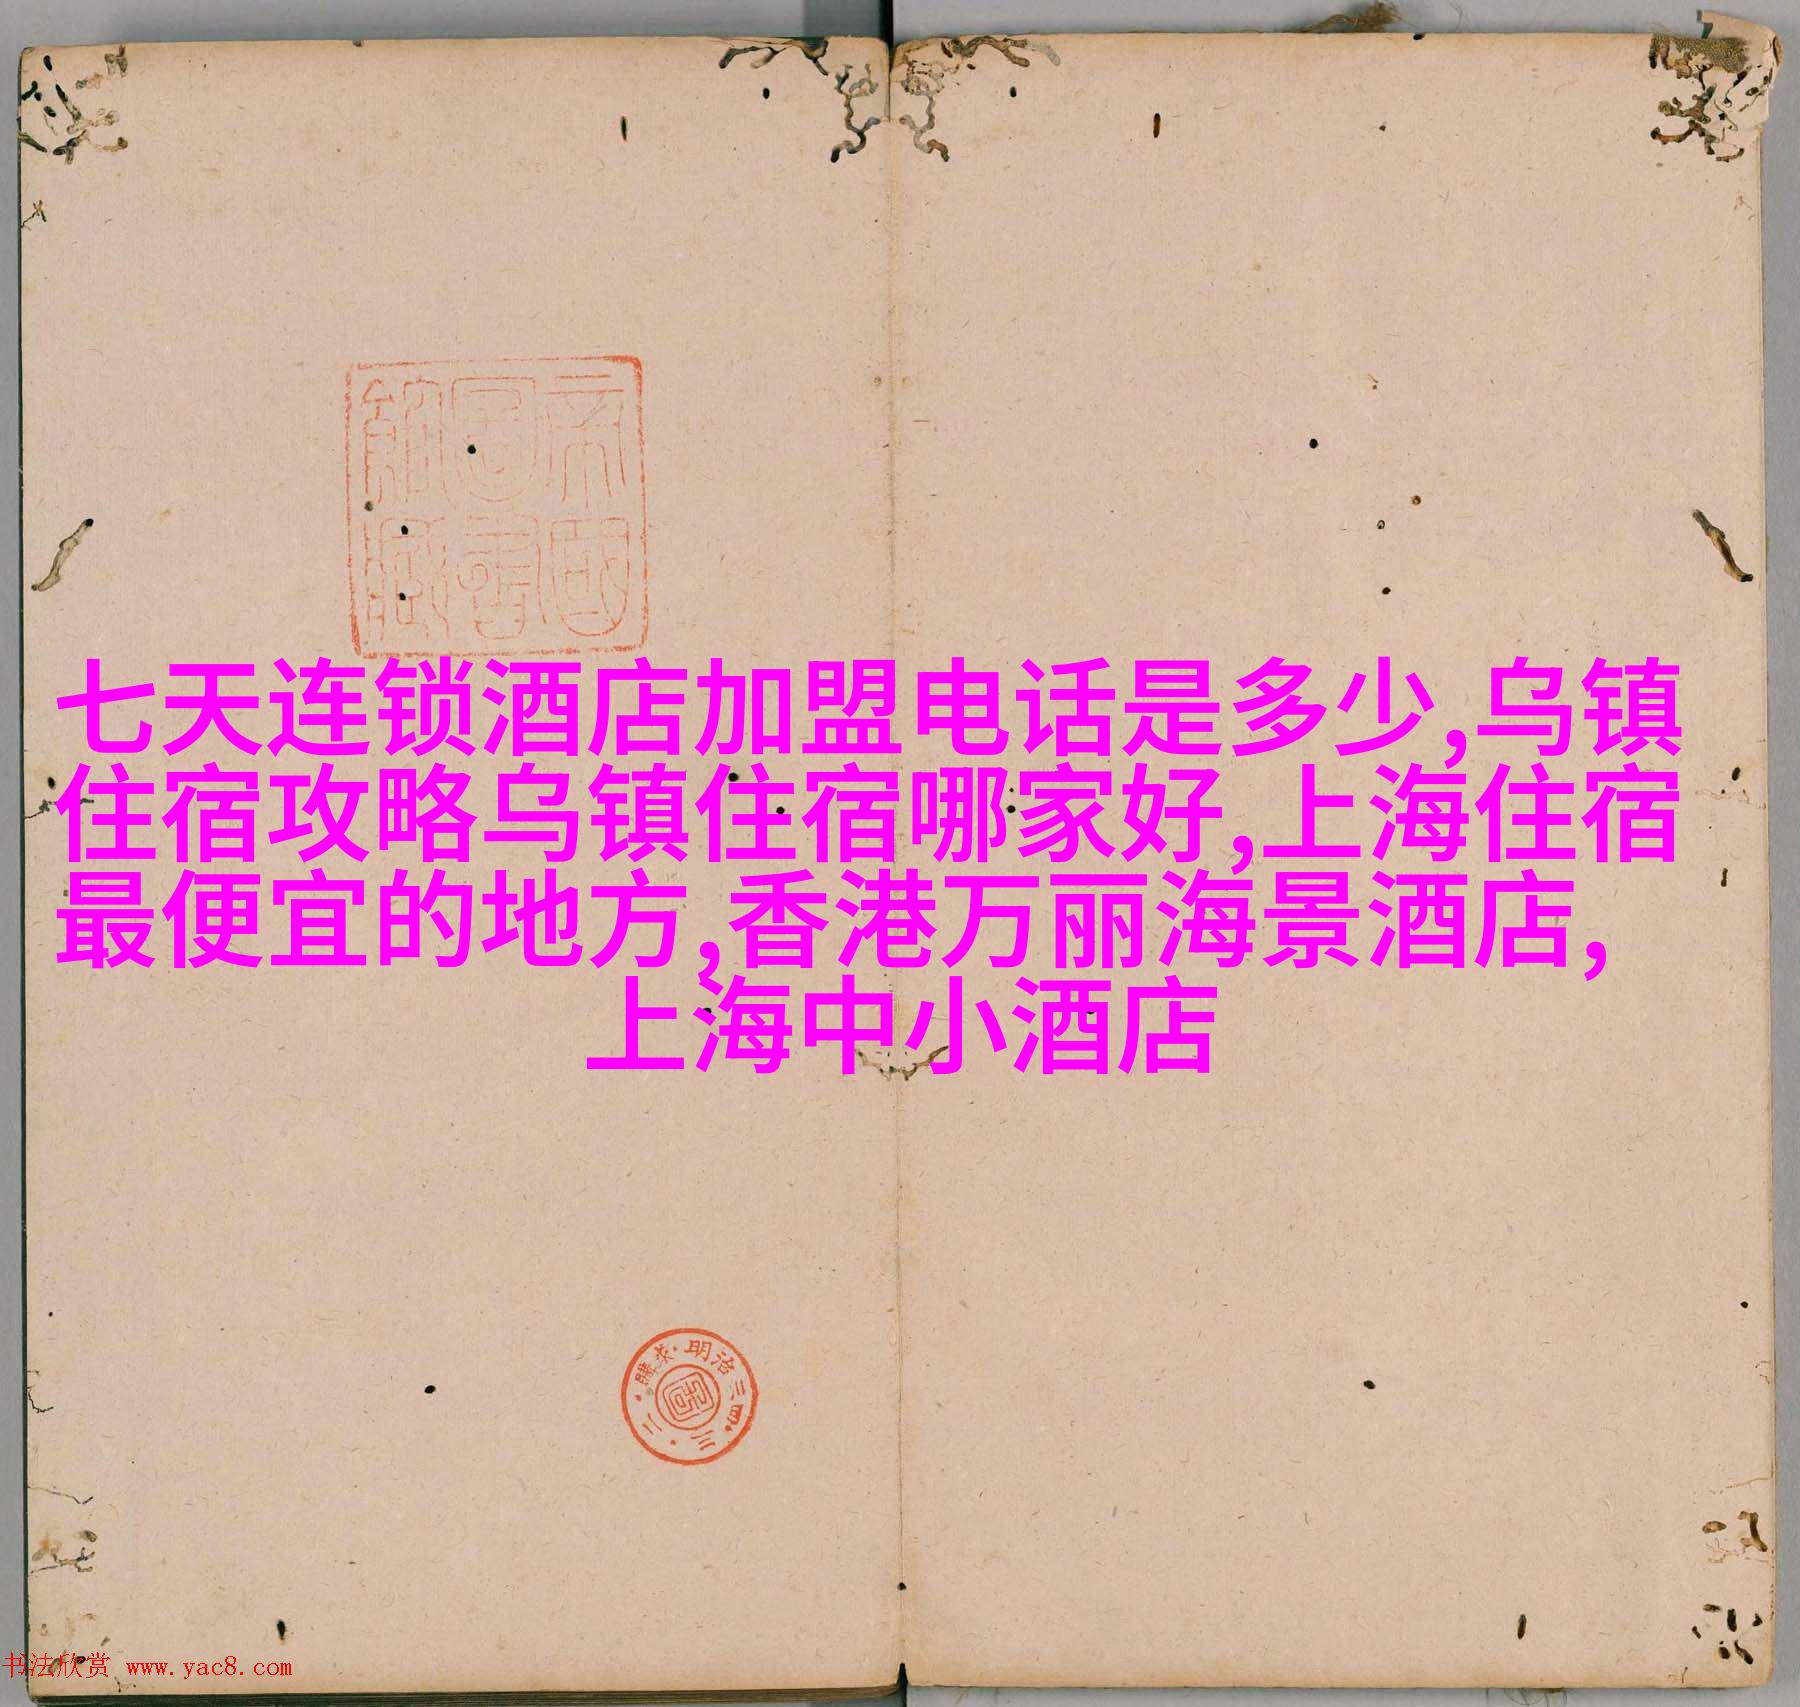 帝國
圖書
館藏
七天连锁酒店加盟电话是多少,乌镇
住宿攻略乌镇住宿哪家好,上海住宿
最便宜的地方,香港万丽海景酒店,
上海中小酒店
明治三四·三·二二·購求·
书法欣赏 www.yac8.com